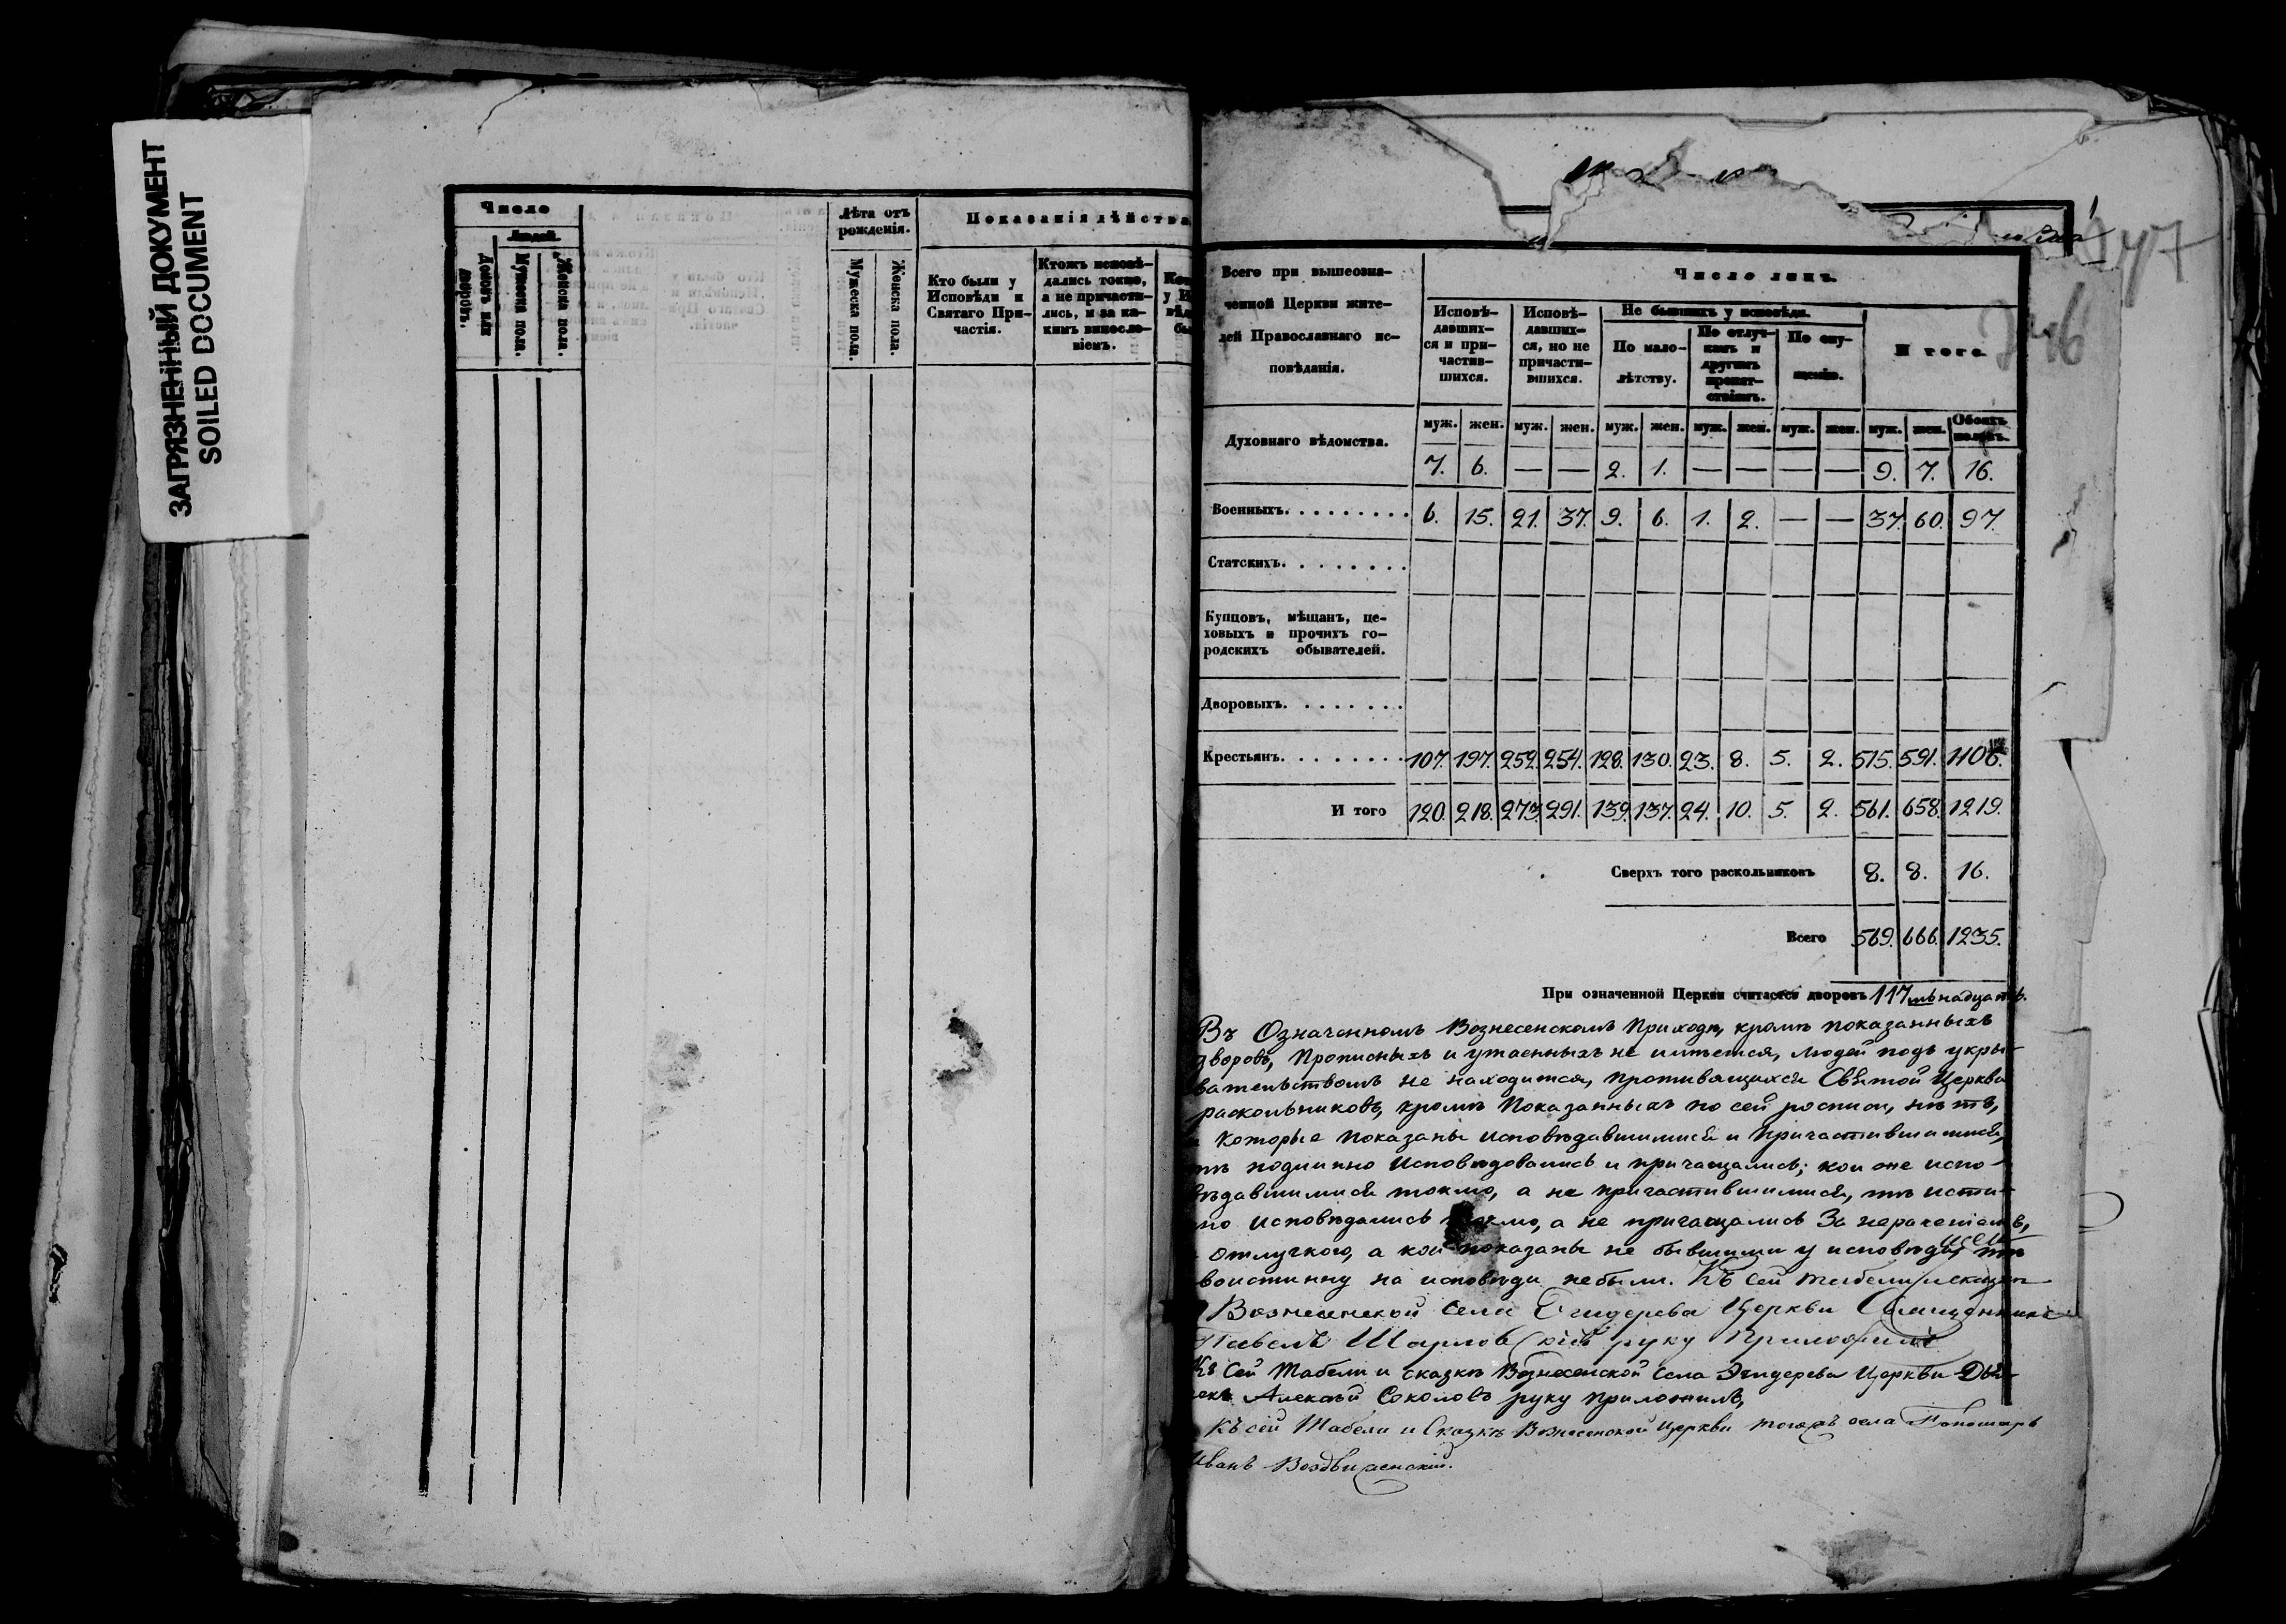 ЗАГРЯЗНЕННЫЙ ДОКУМЕНТ
SOILED DOCUMENT
Число
Людей.
Домовъ или дворовъ.
Мужеска пола.
Женска пола.
Лѣта отъ рожденія.
Мужеска пола.
Женска пола.
Показанія дѣйства
Кто были у Исповѣди и Святаго Причастія.
Ктожъ исповѣдались токмо, а не причастились, и за какимъ винословіемъ.
147
Всего при вышеозначенной Церкви жителей Православнаго исповѣданія.
Число лицъ.
Исповѣдавшихся и причастившихся.
Исповѣдавшихся, но не причастившихся.
Не бывшихъ у исповѣди.
По малолѣтству.
По отлучкамъ и другимъ препятствіямъ.
По опущенію.
И того.
муж. жен. муж. жен. муж. жен. муж. жен. муж. жен. муж. жен. Обоихъ половъ.
Духовнаго вѣдомства. 7. 6. — — 2. 1. — — — — 9. 7. 16.
Военныхъ. 6. 15. 21. 37. 9. 6. 1. 2. — — 37. 60. 97.
Статскихъ.
Купцовъ, мѣщанъ, цеховыхъ и прочихъ городскихъ обывателей.
Дворовыхъ.
Крестьянъ. 107. 197. 252. 254. 128. 130. 23. 8. 5. 2. 515. 591. 1106.
И того 120. 218. 273. 291. 139. 137. 24. 10. 5. 2. 561. 658. 1219.
Сверхъ того раскольниковъ 8. 8. 16.
Всего 569. 666. 1235.
При означенной Церкви считается дворовъ 117
Въ Означенномъ Вознесенскомъ Приходѣ, кромѣ показанныхъ
дворовъ, Прописныхъ и утаенныхъ не имѣется, людей подъ укры-
вательствомъ не находится, противящихся Святой Церкви
раскольниковъ, кромѣ Показанныхъ по сей росписи, нѣтъ,
Которые показаны исповѣдавшимися и Причастившимися,
тѣ подлинно Исповѣдовались и причащались; кои же испо-
вѣдавшимися токмо, а не причастившимися, тѣ исти-
но исповѣдались токмо, а не причащались За нераченіемъ,
отлучкою, а кои показаны не бывшими у исповѣди, тѣ
воистинну на исповѣди небыли. Къ сей табели и сказкѣ
Вознесенской села Ечидерева Церкви Священникъ
Павелъ руку Приложилъ
Къ Сей Табели и сказкѣ Вознесенской Села Эчидерева Церкви Дья-
чекъ Алексѣй Соколовъ руку приложилъ,
Къ сей Табели и Сказкѣ Вознесенской Церкви тогожъ села Пономарь
Иванъ Воздвиженскій.